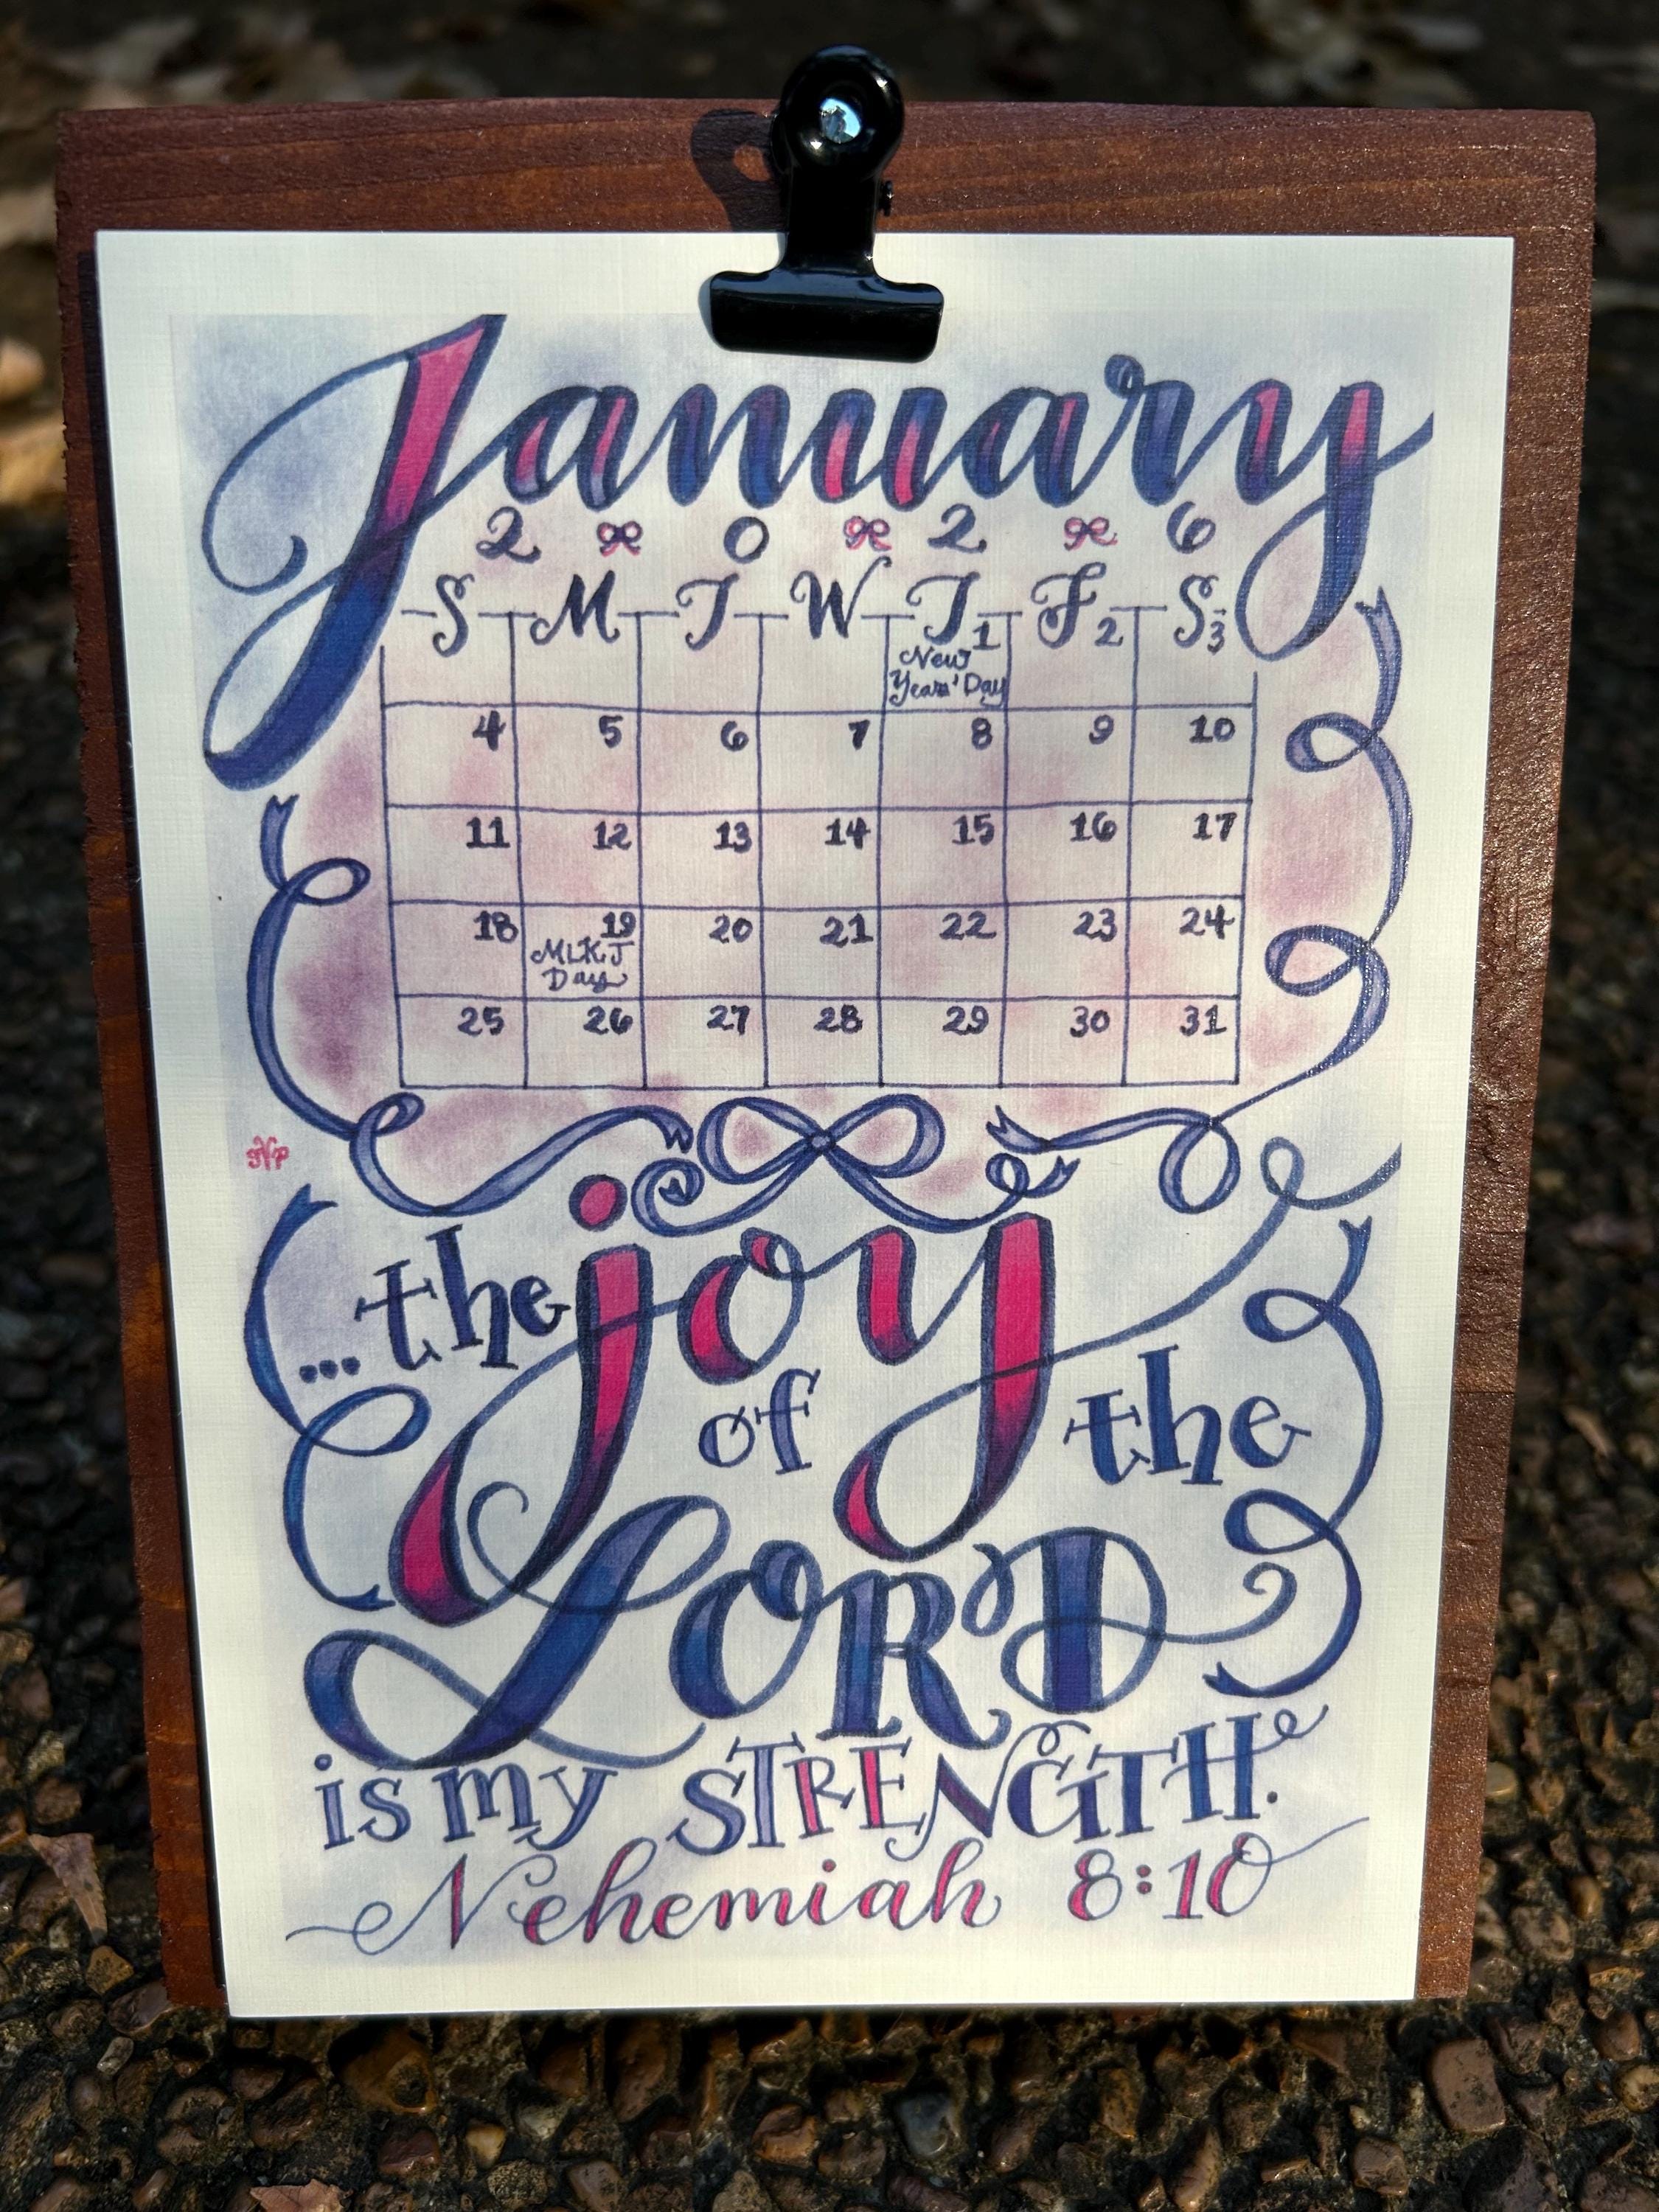 January
2 0 2 6
S M T W T F S
1 2 3
New
Years' Day
4 5 6 7 8 9 10
11 12 13 14 15 16 17
18 19 20 21 22 23 24
MLKJ
Day
25 26 27 28 29 30 31
...the joy
of the
LORD
is my STRENGTH.
Nehemiah 8:10